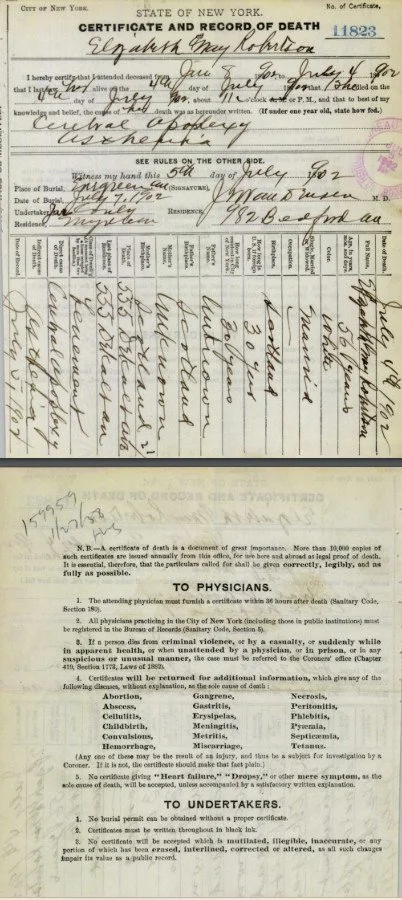 CITY OF NEW YORK.
No. of Certificate,
STATE OF NEW YORK.
CERTIFICATE AND RECORD OF DEATH
11823
OF
Elizabeth May Robertson
I hereby certify that I attended deceased from Jan 8 1902 to July 4 1902
that I last saw her alive on the 4th day of July 1902 that She died on the
4th day of July 1902, about 11 o'clock A.M. or P.M., and that to best of my
knowledge and belief, the cause of her death was as hereunder written. (If under one year old, state how fed.)
Cerebral Apoplexy
Asthenia
SEE RULES ON THE OTHER SIDE.
Witness my hand this 5th day of July 1902
Place of Burial, Evrgreen (SIGNATURE), M. D.
Date of Burial, July 7, 1902
Undertaker,
Residence, RESIDENCE, 982 Bedford av
Date of Death. July 4th 1902
Full Name. Elizabeth May Robertson
Age, in years, mos. and days. 56 years
Color. White
Single, Married or Widowed. Married
Occupation.
Birthplace. Scotland
How long in U. S. if foreign born. 30 yrs
How long resident in City of New York. 30 years
Father's Name. Unknown
Father's Birthplace. Scotland
Mother's Name. Unknown
Mother's Birthplace. Scotland
Place of Death. 333 DeKalb av
Last place of Residence. 333 DeKalb av
Tenement
Direct cause of Death. Cerebral Apoplexy
Indirect cause of Death. Asthenia
Date of Record. July 5, 1902
159959
N.B.—A certificate of death is a document of great importance. More than 10,000 copies of
such certificates are issued annually from this office, for use here and abroad as legal proof of death.
It is essential, therefore, that the particulars called for shall be given correctly, legibly, and as
fully as possible.
TO PHYSICIANS.
1. The attending physician must furnish a certificate within 36 hours after death (Sanitary Code,
Section 180).
2. All physicians practicing in the City of New York (including those in public institutions) must
be registered in the Bureau of Records (Sanitary Code, Section 5).
3. If a person dies from criminal violence, or by a casualty, or suddenly while
in apparent health, or when unattended by a physician, or in prison, or in any
suspicious or unusual manner, the case must be referred to the Coroners' office (Chapter
410, Section 1773, Laws of 1882).
4. Certificates will be returned for additional information, which give any of the
following diseases, without explanation, as the sole cause of death:
Abortion, Gangrene, Necrosis,
Abscess, Gastritis, Peritonitis,
Cellulitis, Erysipelas, Phlebitis,
Childbirth, Meningitis, Pyæmia,
Convulsions, Metritis, Septicæmia,
Hemorrhage, Miscarriage, Tetanus.
(Any one of these may be the result of an injury, and thus be a subject for investigation by a
Coroner. If it is not, the certificate should make that fact plain.)
5. No certificate giving "Heart failure," "Dropsy," or other mere symptom, as the
sole cause of death, will be accepted, unless accompanied by a satisfactory written explanation.
TO UNDERTAKERS.
1. No burial permit can be obtained without a proper certificate.
2. Certificates must be written throughout in black ink.
3. No certificate will be accepted which is mutilated, illegible, inaccurate, or any
portion of which has been erased, interlined, corrected or altered, as all such changes
impair its value as a public record.